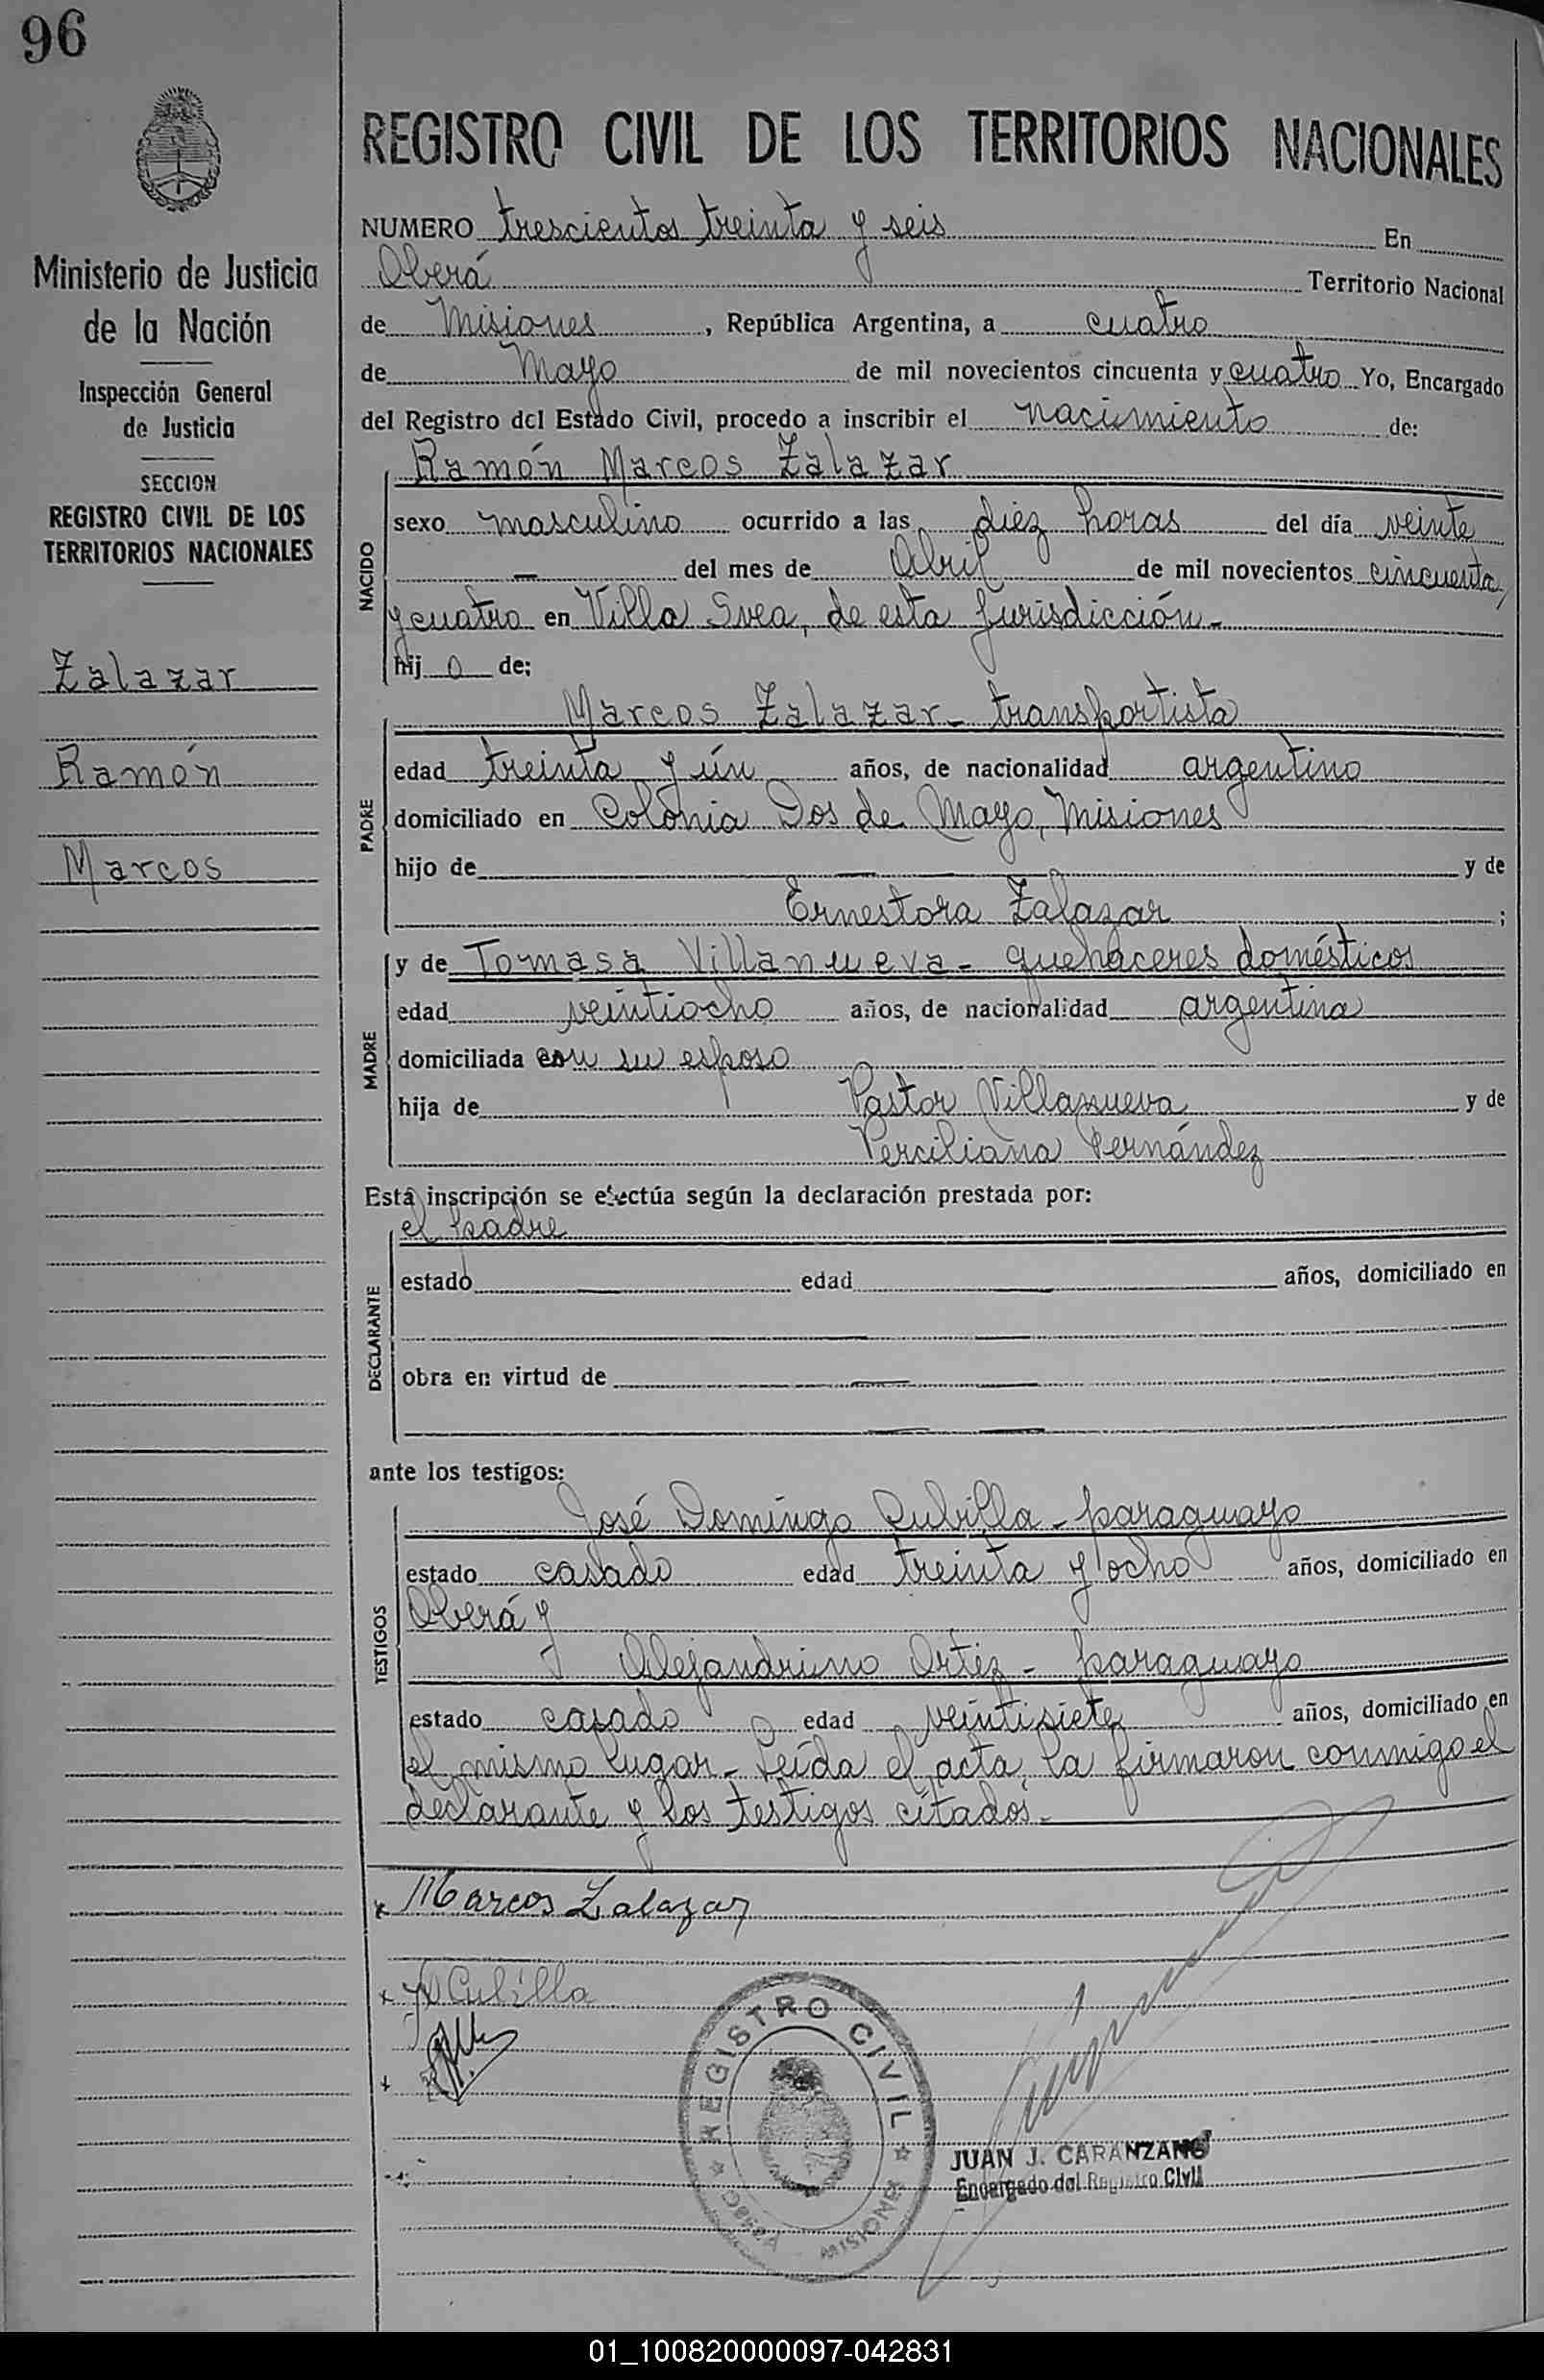 96
REGISTRO CIVIL DE LOS TERRITORIOS NACIONALES
Ministerio de Justicia
de la Nación
Inspección General
de Justicia
SECCION
REGISTRO CIVIL DE LOS
TERRITORIOS NACIONALES
Zalazar
Ramón
Marcos
NUMERO trescientos treinta y seis En
Oberá Territorio Nacional
de Misiones, República Argentina, a cuatro
de Mayo de mil novecientos cincuenta y cuatro Yo, Encargado
del Registro del Estado Civil, procedo a inscribir el nacimiento de:
NACIDO
Ramón Marcos Zalazar
sexo masculino ocurrido a las diez horas del día veinte
— del mes de Abril de mil novecientos cincuenta
y cuatro en Villa Svea, de esta jurisdicción.-
hijo de;
PADRE
Marcos Zalazar - transportista
edad treinta y ún años, de nacionalidad argentino
domiciliado en Colonia Dos de Mayo, Misiones
hijo de — y de
Ernestora Zalazar ;
MADRE
y de Tomasa Villanueva - quehaceres domésticos
edad veintiocho años, de nacionalidad argentina
domiciliada con su esposo
hija de Pastor Villanueva y de
Perciliana Fernández
Esta inscripción se efectúa según la declaración prestada por:
DECLARANTE
el padre
estado — edad — años, domiciliado en
obra en virtud de —
ante los testigos:
TESTIGOS
José Domingo Cubilla - paraguayo
estado casado edad treinta y ocho años, domiciliado en
Oberá y
Alejandrino Ortiz - paraguayo
estado casado edad veintisiete años, domiciliado en
el mismo lugar - Leída el acta, la firmaron conmigo el
declarante y los testigos citados.-
x Marcos Zalazar
x Cubilla
REGISTRO CIVIL
OBERA MISIONES
JUAN J. CARANZANO
Encargado del Registro Civil
01_100820000097-042831